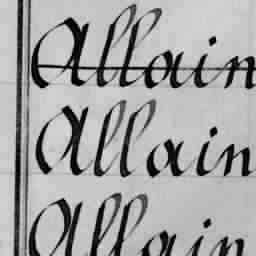 Allain
Allain
Allain